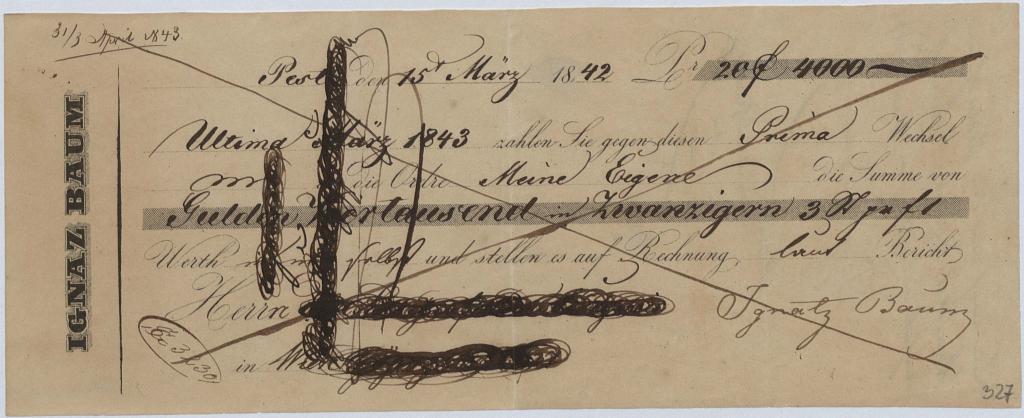 31/3 April 1843.
IGNAZ BAUM
Pest den 15t März 1842 Pr 20f 4000
Ultimo März 1843 zahlen Sie gegen diesen Prima Wechsel
die Ordre Meine Eigene die Summe von
Gulden Viertausend in Zwanzigern 3 St pr f 1
Werth selbst und stellen es auf Rechnung laut Bericht
Herrn Ignatz Baum
in Wien
327